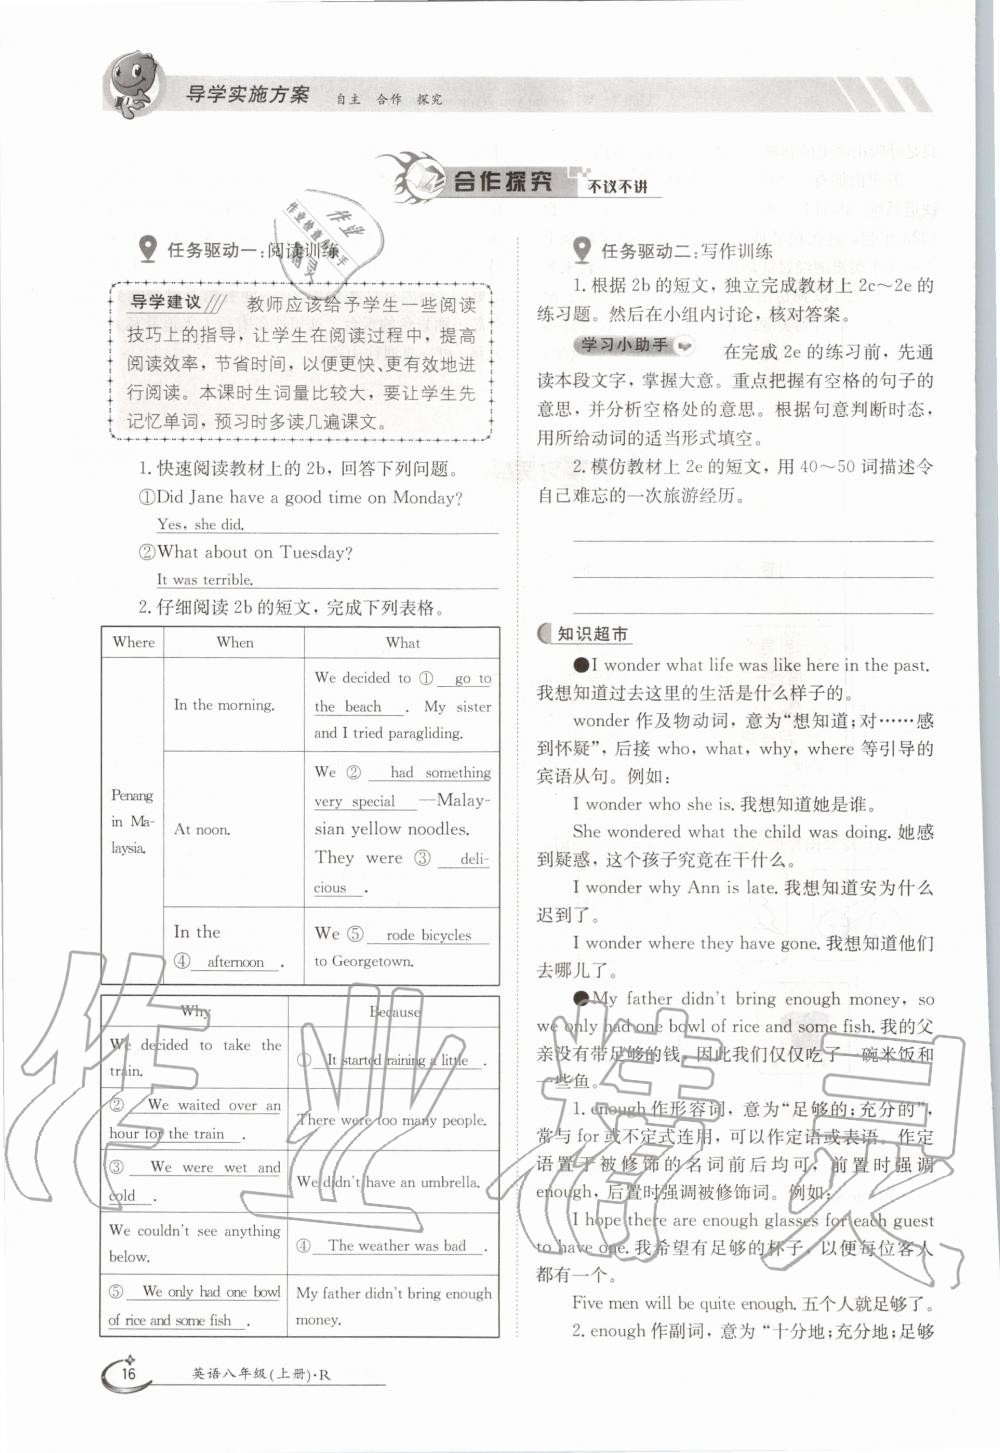 导学实施方案 自主 合作 探究
合作探究 不议不讲
任务驱动一:阅读训练
导学建议 教师应该给予学生一些阅读
技巧上的指导,让学生在阅读过程中,提高
阅读效率,节省时间,以便更快、更有效地进
行阅读。本课时生词量比较大,要让学生先
记忆单词,预习时多读几遍课文。
1.快速阅读教材上的2b,回答下列问题。
①Did Jane have a good time on Monday?
Yes, she did.
②What about on Tuesday?
It was terrible.
2.仔细阅读2b的短文,完成下列表格。
Where When What
Penang
in Ma-
laysia.
In the morning.
We decided to ① go to
the beach . My sister
and I tried paragliding.
At noon.
We ② had something
very special —Malay-
sian yellow noodles.
They were ③ deli-
cious .
In the
④ afternoon .
We ⑤ rode bicycles
to Georgetown.
Why Because
We decided to take the
train.
① It started raining a little .
② We waited over an
hour for the train .
There were too many people.
③ We were wet and
cold .
We didn't have an umbrella.
We couldn't see anything
below.
④ The weather was bad .
⑤ We only had one bowl
of rice and some fish .
My father didn't bring enough
money.
任务驱动二:写作训练
1.根据2b的短文,独立完成教材上2c～2e的
练习题。然后在小组内讨论,核对答案。
学习小助手 在完成2e的练习前,先通
读本段文字,掌握大意。重点把握有空格的句子的
意思,并分析空格处的意思。根据句意判断时态,
用所给动词的适当形式填空。
2.模仿教材上2e的短文,用40～50词描述令
自己难忘的一次旅游经历。
知识超市
●I wonder what life was like here in the past.
我想知道过去这里的生活是什么样子的。
wonder 作及物动词,意为“想知道;对……感
到怀疑”,后接 who, what, why, where 等引导的
宾语从句。例如:
I wonder who she is. 我想知道她是谁。
She wondered what the child was doing. 她感
到疑惑,这个孩子究竟在干什么。
I wonder why Ann is late. 我想知道安为什么
迟到了。
I wonder where they have gone. 我想知道他们
去哪儿了。
●My father didn't bring enough money, so
we only had one bowl of rice and some fish. 我的父
亲没有带足够的钱,因此我们仅仅吃了一碗米饭和
一些鱼。
1. enough 作形容词,意为“足够的;充分的”,
常与for或不定式连用,可以作定语或表语。作定
语置于被修饰的名词前后均可,前置时强调
enough,后置时强调被修饰词。例如:
I hope there are enough glasses for each guest
to have one. 我希望有足够的杯子,以便每位客人
都有一个。
Five men will be quite enough. 五个人就足够了。
2. enough 作副词,意为“十分地;充分地;足够
16 英语八年级(上册)·R
作业精灵